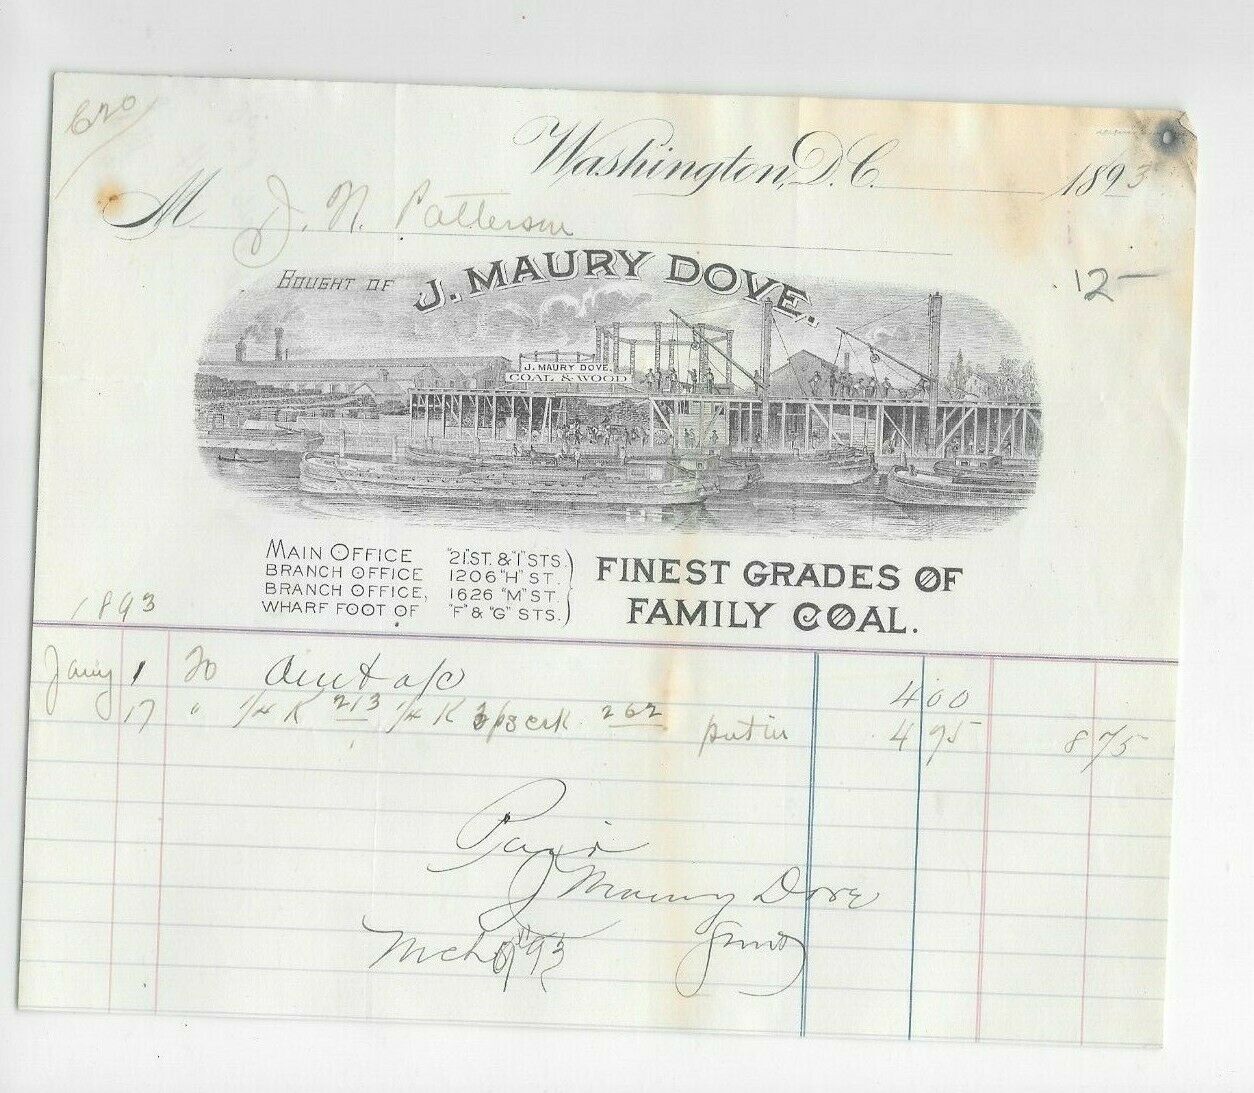 620/
Washington, D.C. 1893
M J. N. Patterson
BOUGHT OF J. MAURY DOVE.
12 —
J. MAURY DOVE.
COAL & WOOD
MAIN OFFICE "21"ST. & "I" STS.
BRANCH OFFICE 1206 "H" ST.
BRANCH OFFICE, 1626 "M" ST.
WHARF FOOT OF "F" & "G" STS.
FINEST GRADES OF
FAMILY COAL.
1893
Jany 1 To a/c 4 00
17 " 1/4 R 213 1/4 R 262 put in 4 75 8 75
Paid
J Maury Dove
Mch 93